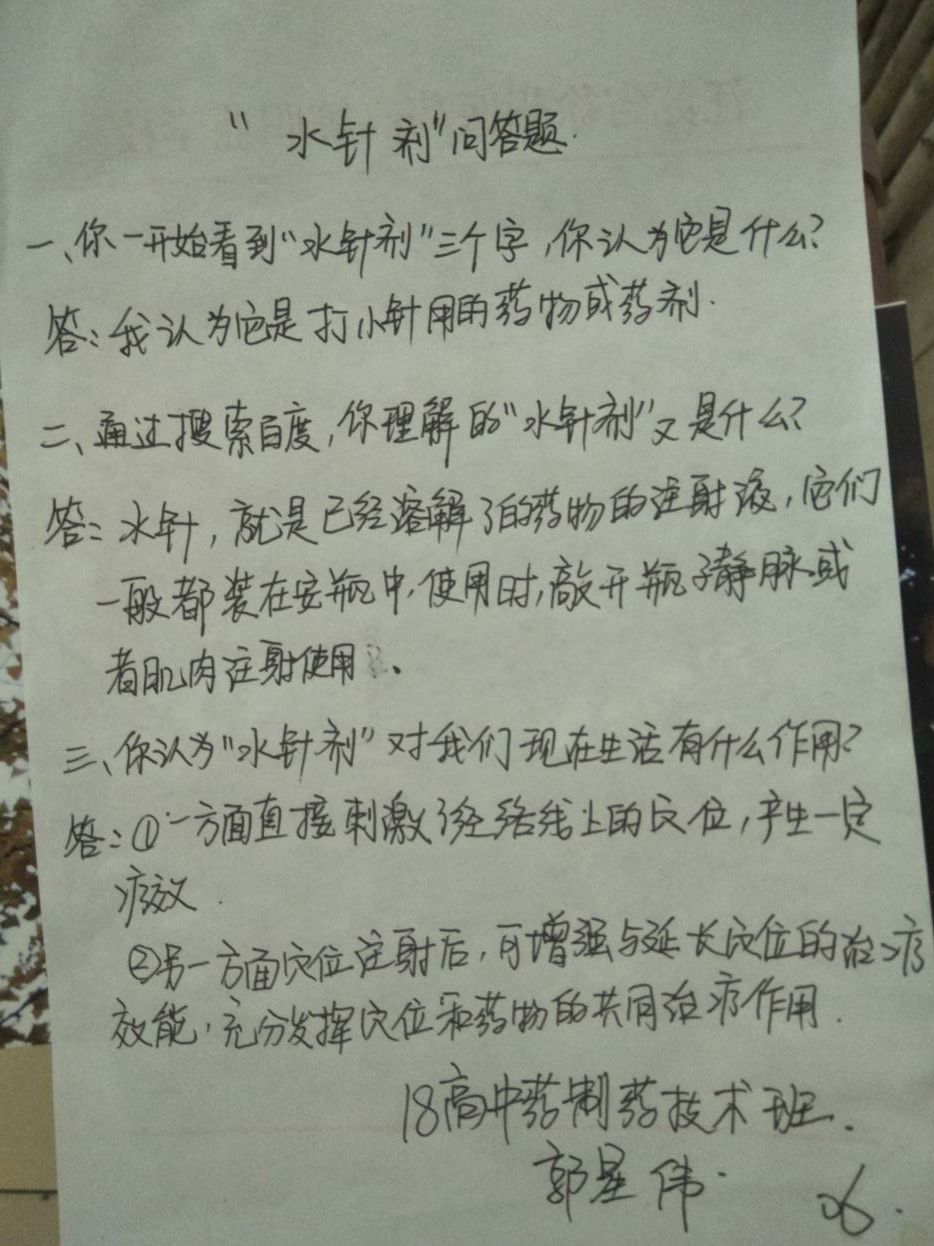 “水针剂”问答题.
一、你一开始看到“水针剂”三个字,你认为它是什么?
答:我认为它是打小针用的药物或药剂.
二、通过搜索百度,你理解的“水针剂”又是什么?
答:水针,就是已经溶解了的药物的注射液,它们
一般都装在安瓶中,使用时,敲开瓶子静脉或
者肌肉注射使用。
三、你认为“水针剂”对我们现在生活有什么作用?
答:①一方面直接刺激了经络线上的穴位,产生一定
疗效.
②另一方面穴位注射后,可增强与延长穴位的治疗
效能,充分发挥穴位和药物的共同治疗作用.
18高中药制药技术班.
郭星伟.
06.